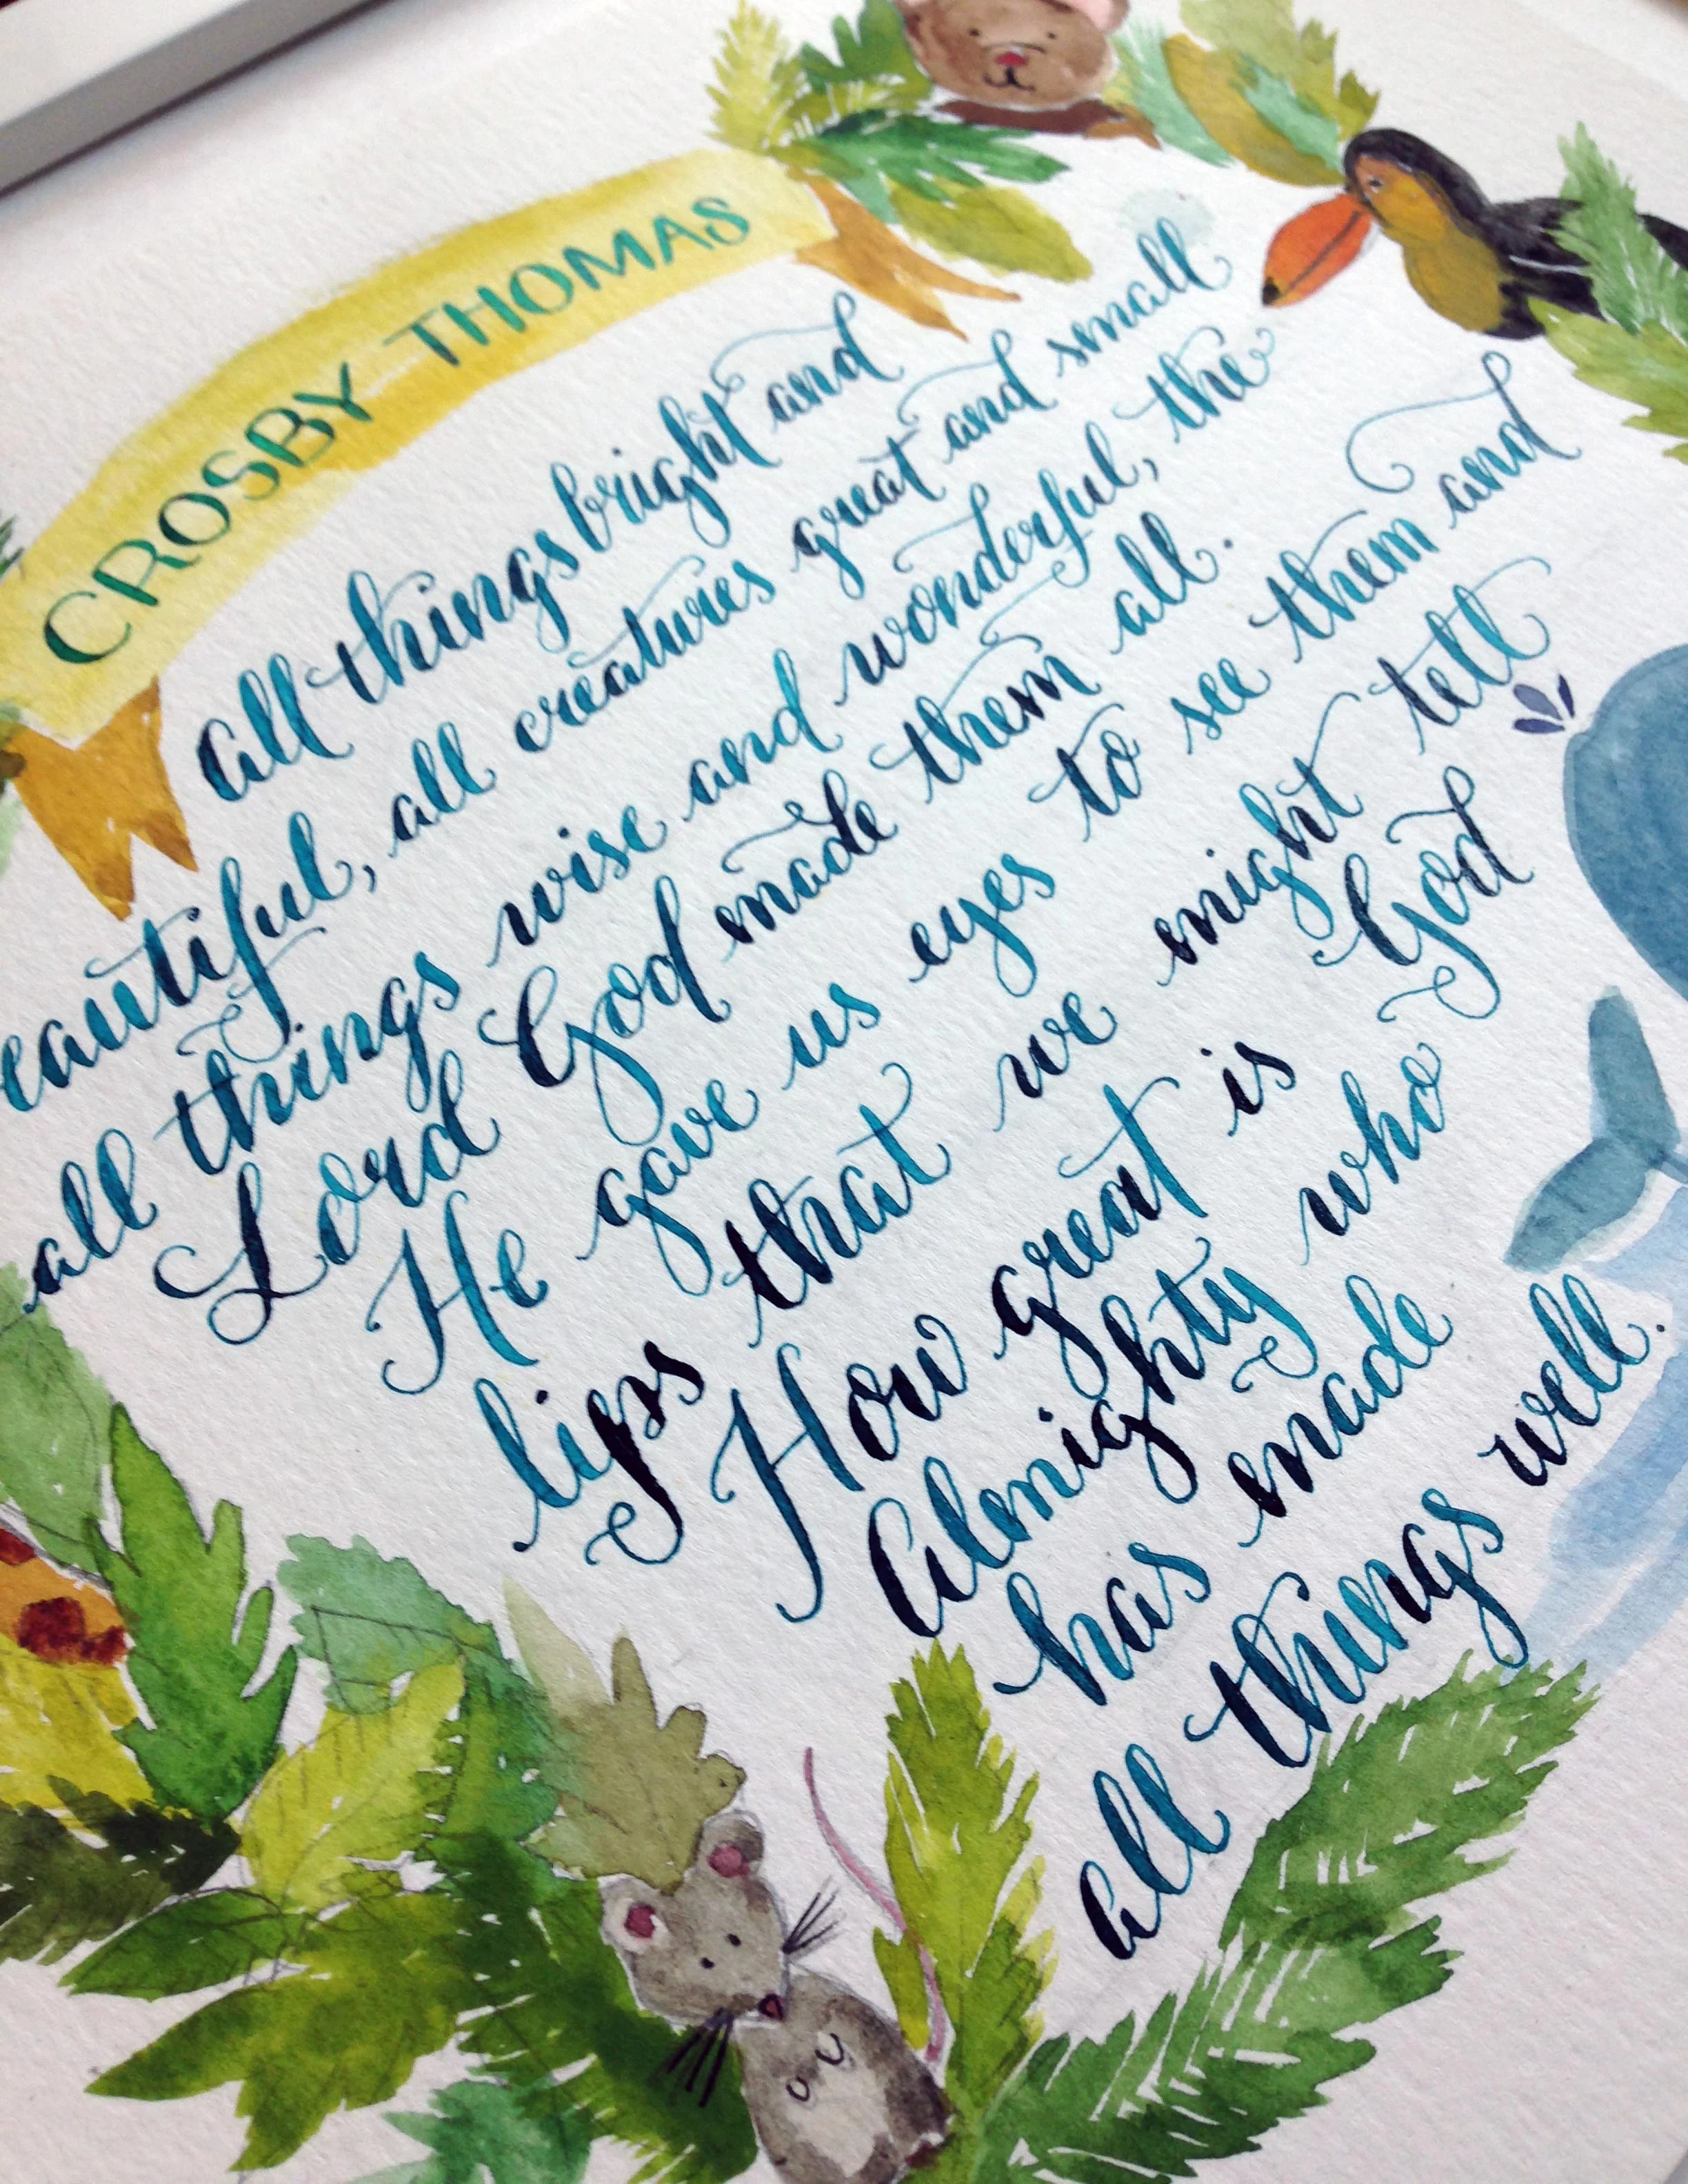 CROSBY THOMAS
All things bright and
eautiful, all creatures great and small
all things wise and wonderful, the
Lord God made them all.
He gave us eyes to see them and
lips that we might tell
How great is God
Almighty who
has made
all things well.